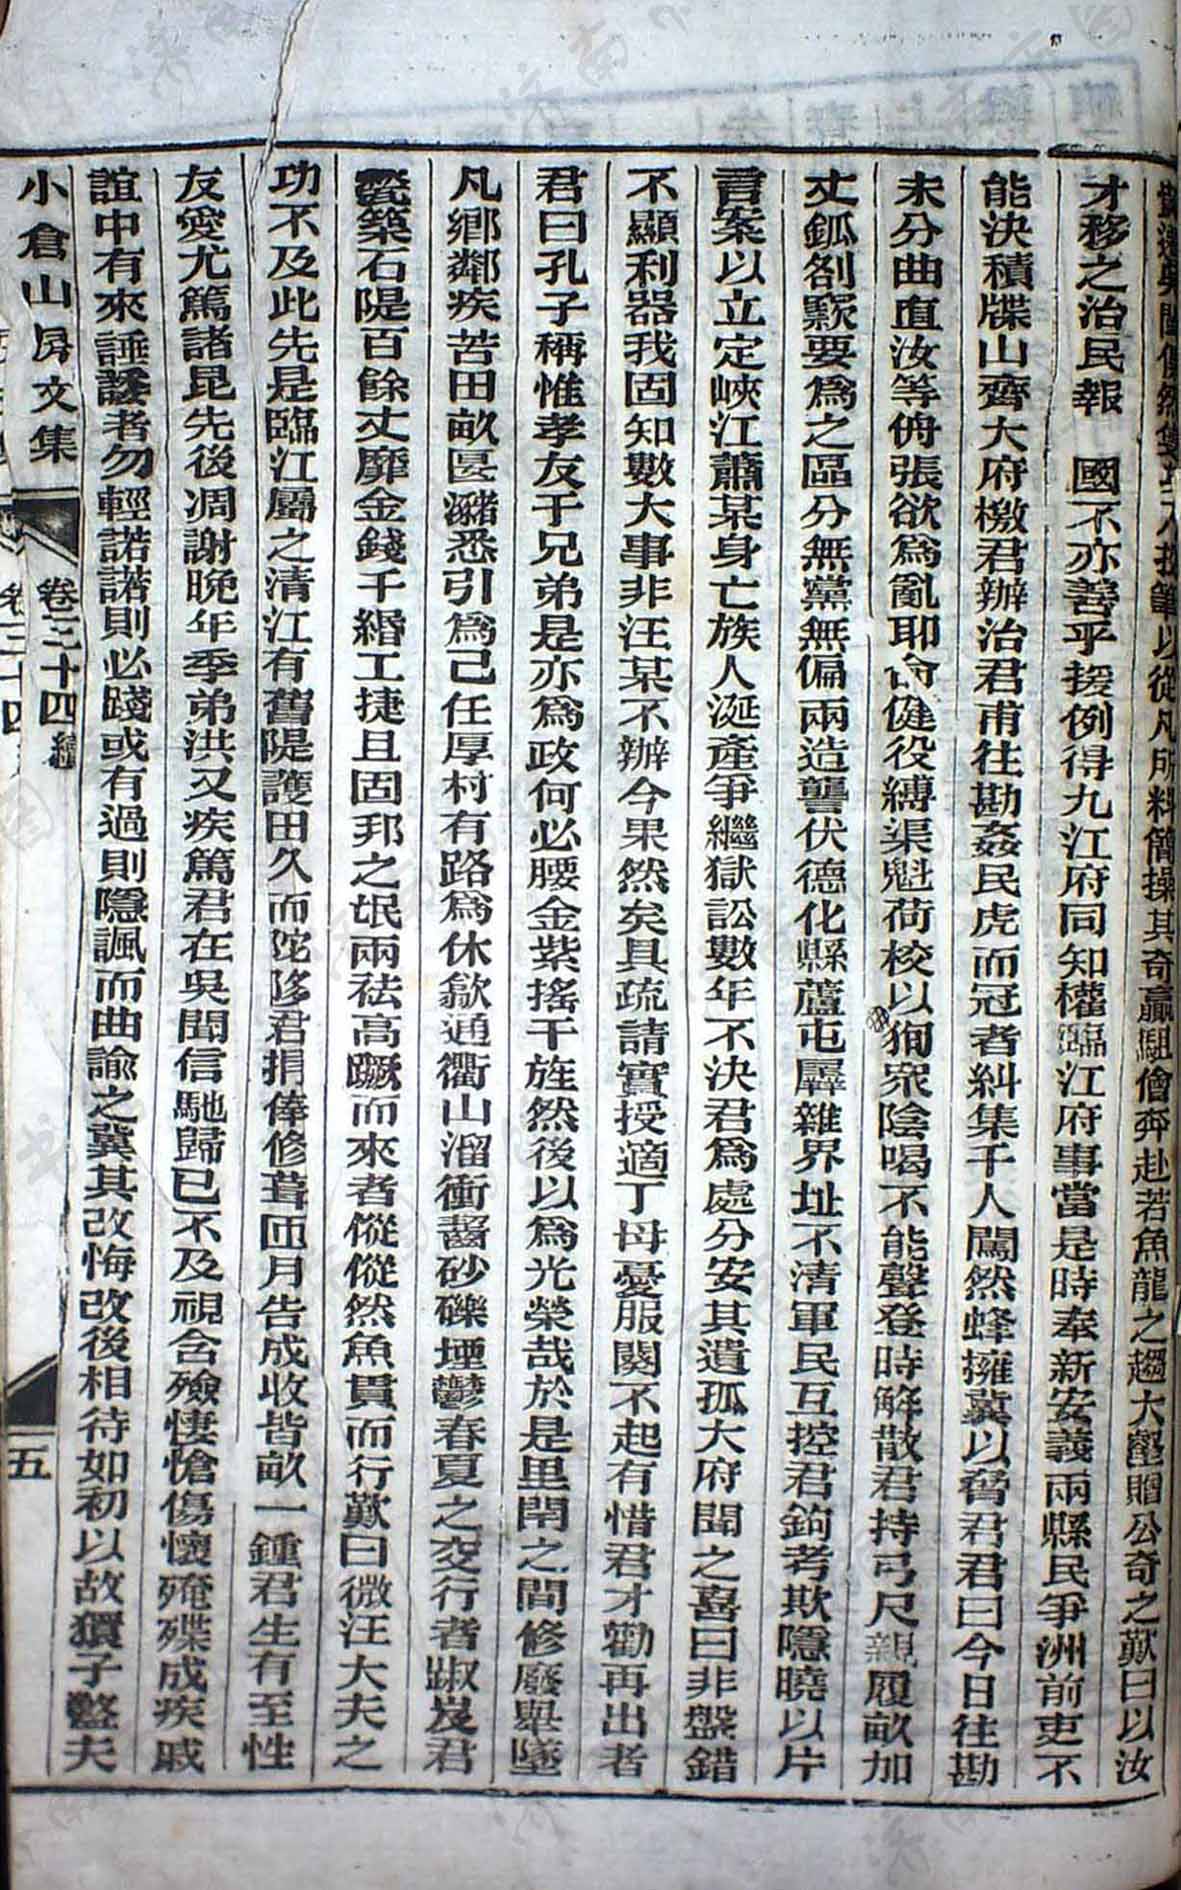 以從凡所料簡操其奇贏駔儈奔赴若魚龍之趨大壑贈公奇之歎曰以汝
才移之治民報　國不亦善乎援例得九江府同知權臨江府事當是時奉新安義兩縣民爭洲前吏不
能決積牒山齊大府檄君辦治君甫往勘姦民虎而冠者糾集千人闖然蜂擁冀以脅君君曰今日往勘
未分曲直汝等侜張欲爲亂耶命健役縛渠魁荷校以狥眾陰喝不能聲登時解散君持弓尺親履畝加
丈鈲劉窾要爲之區分無黨無偏兩造讋伏德化縣蘆屯羼雜界址不清軍民互控君鉤考欺隱曉以片
言案以立定峽江蕭某身亡族人涎產爭繼獄訟數年不決君爲處分安其遺孤大府聞之喜曰非盤錯
不顯利器我固知數大事非汪某不辦今果然矣具疏請實授適丁母憂服闋不起有惜君才勸再出者
君曰孔子稱惟孝友于兄弟是亦爲政何必腰金紫搖干旌然後以爲光榮哉於是里閈之間修廢舉墜
凡鄉鄰疾苦田畝匽瀦悉引爲己任厚村有路爲休歙通衢山溜衝齧砂礫堙鬱春夏之交行者踧岌君
甃築石隄百餘丈靡金錢千緡工捷且固邦之氓兩袪高蹶而來者傱傱然魚貫而行歎曰微汪大夫之
功不及此先是臨江屬之清江有舊隄護田久而陀陊君捐俸修葺匝月告成收皆畝一鍾君生有至性
友愛尤篤諸昆先後凋謝晚年季弟洪又疾篤君在吳聞信馳歸已不及視含殮悽愴傷懷殗殜成疾戚
誼中有來諈諉者勿輕諾諾則必踐或有過則隱諷而曲諭之冀其改悔改後相待如初以故獧子盭夫
小倉山房文集　卷三十四續　五